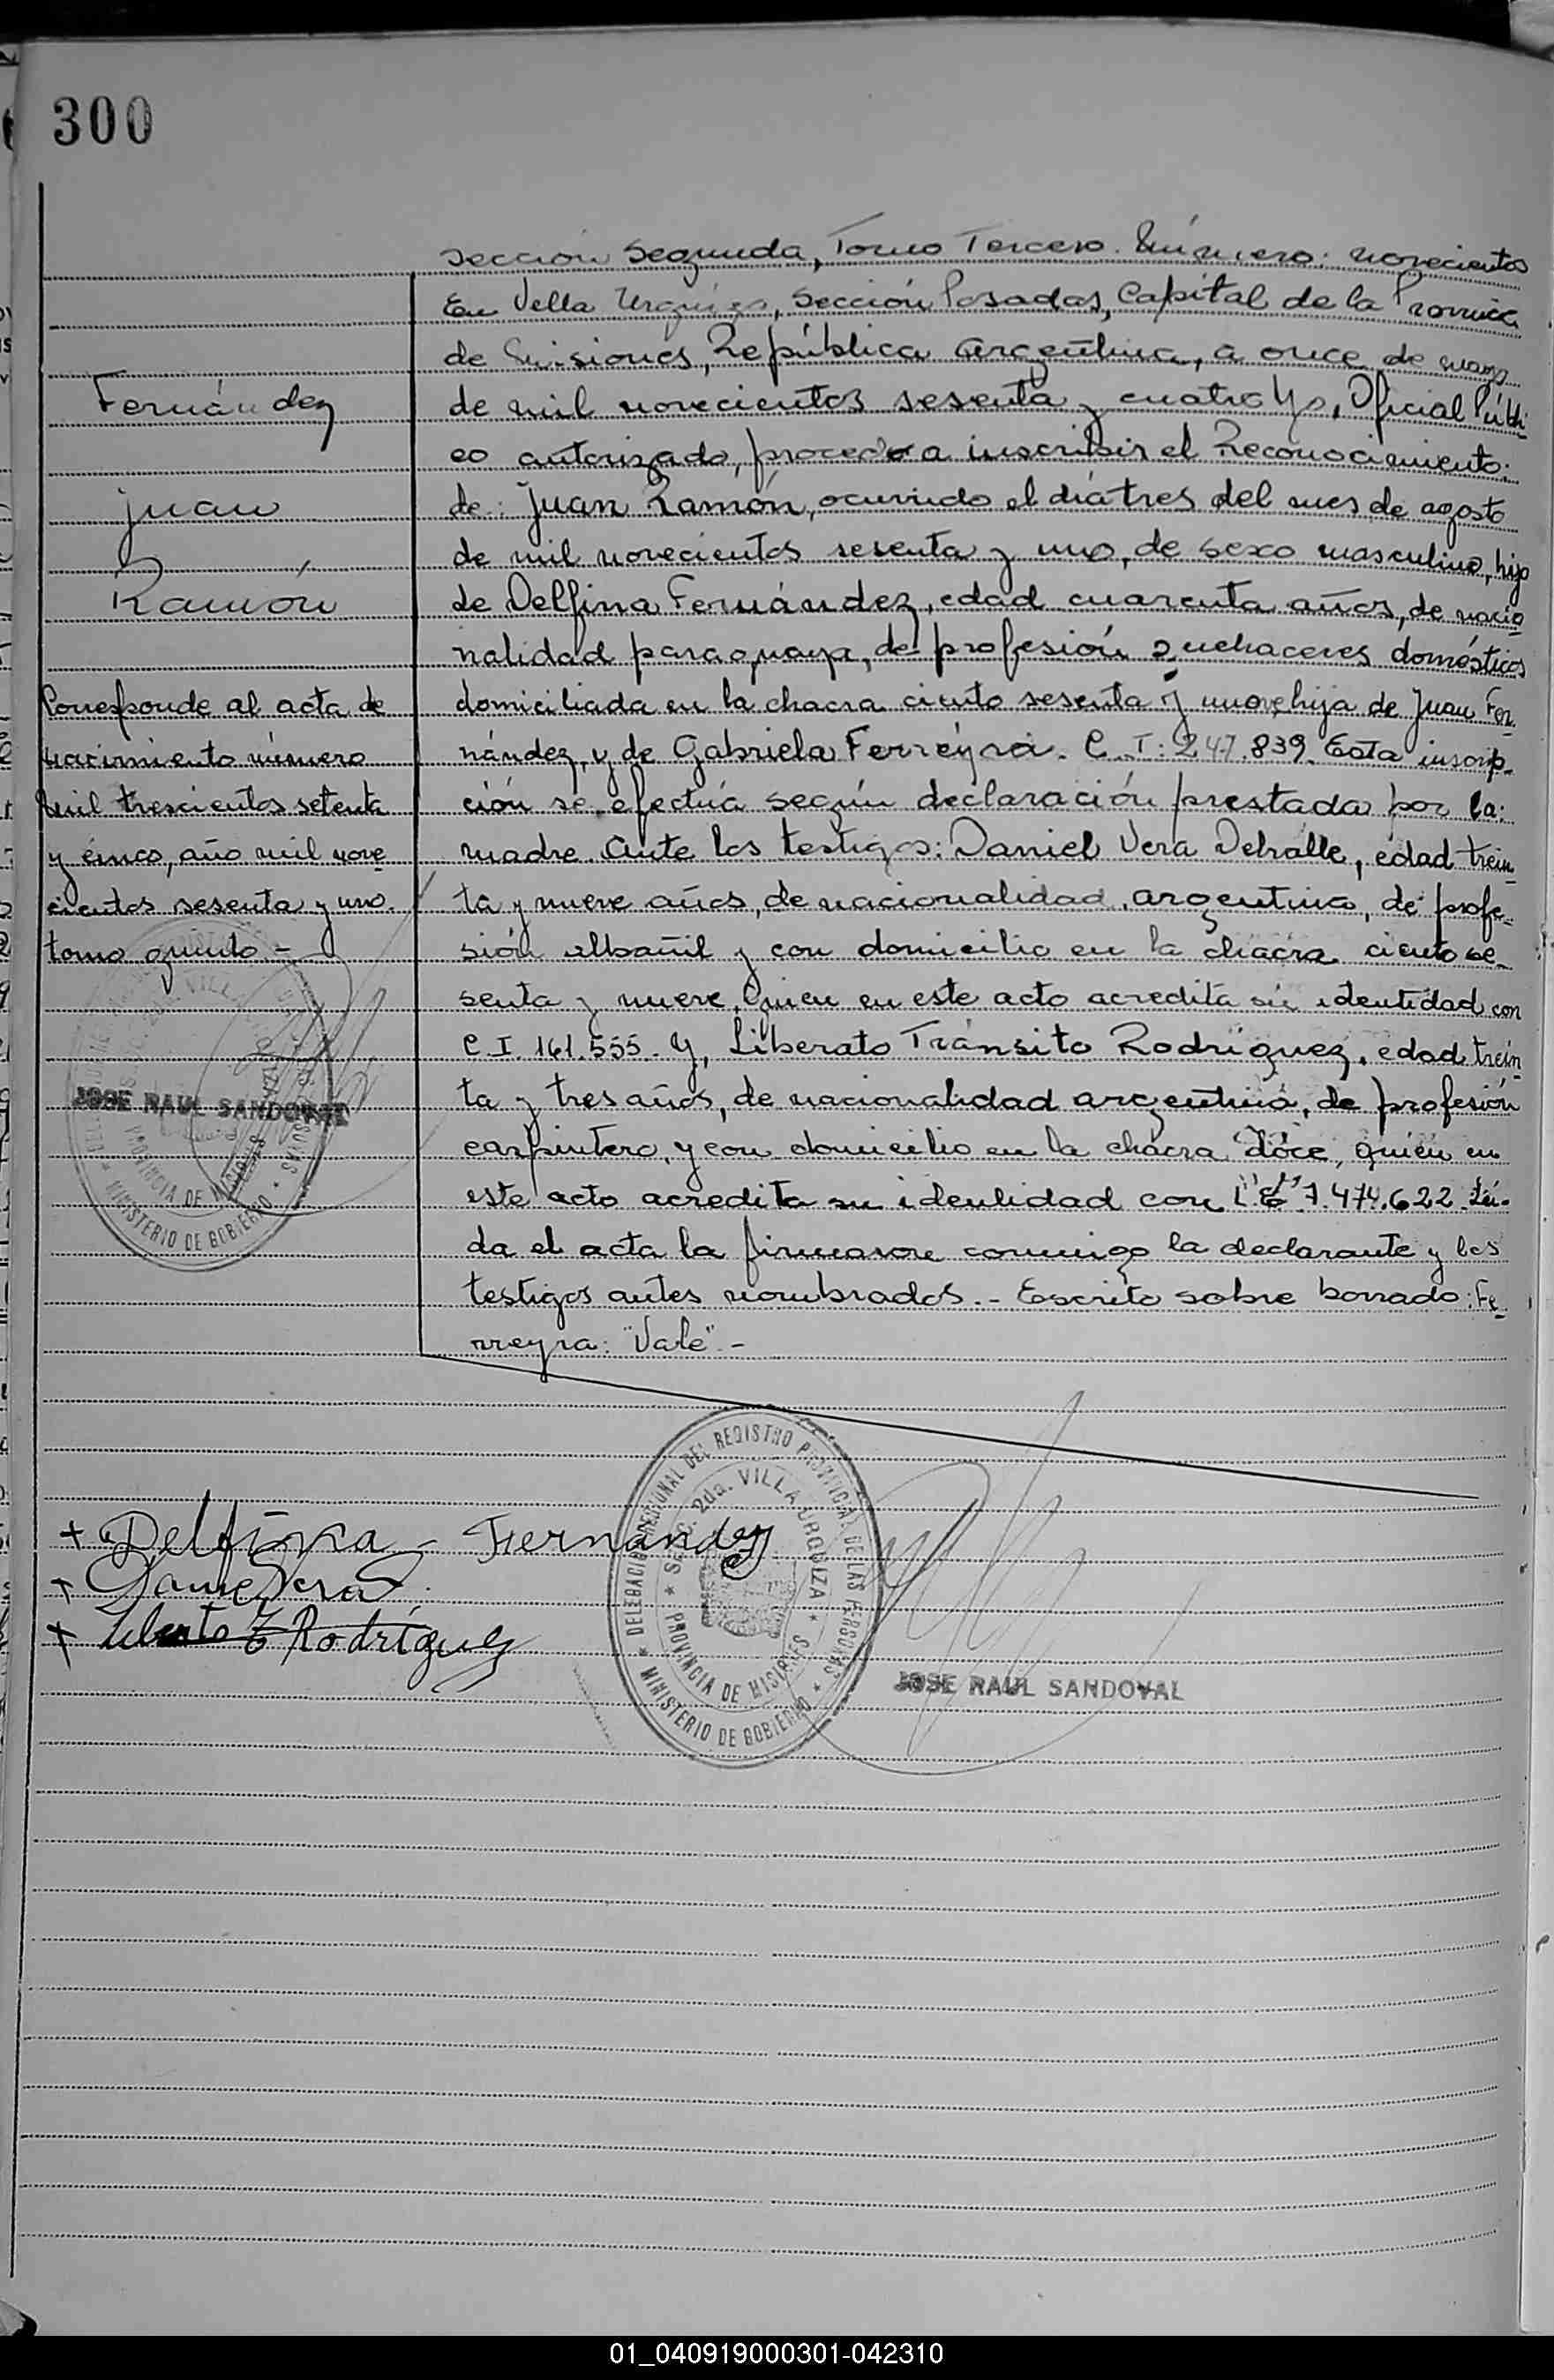 300
Sección Segunda, Tomo Tercero. Número: novecientos
En Villa Urquiza, Sección Posadas, Capital de la Provincia
de Misiones, República Argentina, a once de marzo
de mil novecientos sesenta y cuatro Yo, Oficial Públi
co autorizado, procedo a inscribir el Reconocimiento.
de: Juan Ramón, ocurrido el día tres del mes de agosto
de mil novecientos sesenta y uno, de sexo masculino, hijo
de Delfina Fernández, edad cuarenta años, de nacio
nalidad paraguaya, de profesión quehaceres domésticos
domiciliada en la chacra ciento sesenta y nueve, hija de Juan Fer
nández, y de Gabriela Ferreyra. C. I: 247.839. Esta inscrip-
ción se efectúa según declaración prestada por la:
madre. Ante los testigos: Daniel Vera Delvalle, edad trein
ta y nueve años, de nacionalidad argentina, de profe-
sión albañil y con domicilio en la chacra ciento se-
senta y nueve, quien en este acto acredita su identidad con
C.I. 161.555. Y, Liberato Tránsito Rodríguez, edad trein
ta y tres años, de nacionalidad argentina, de profesión
carpintero, y con domicilio en la chacra doce, quién en
este acto acredita su identidad con L."E" 7.474.622. Leí-
da el acta la firmaron conmigo la declarante y los
testigos antes nombrados.- Escrito sobre borrado: Fe
rreyra: "Vale".-
Fernández
Juan
Ramón
Corresponde al acta de
nacimiento número
mil trescientos setenta
y cinco, año mil nove
cientos sesenta y uno.
tomo quinto -
JOSE RAUL SANDOVAL
PROVINCIA DE MISIONES
MINISTERIO DE GOBIERNO
+ Delfina - Fernandez
+ Daniel Vera D.
+ Liberato T Rodríguez
DELEGACION REGIONAL DEL REGISTRO PROVINCIAL DE LAS PERSONAS
SECC. 2da. VILLA URQUIZA
PROVINCIA DE MISIONES
MINISTERIO DE GOBIERNO
JOSE RAUL SANDOVAL
01_040919000301-042310